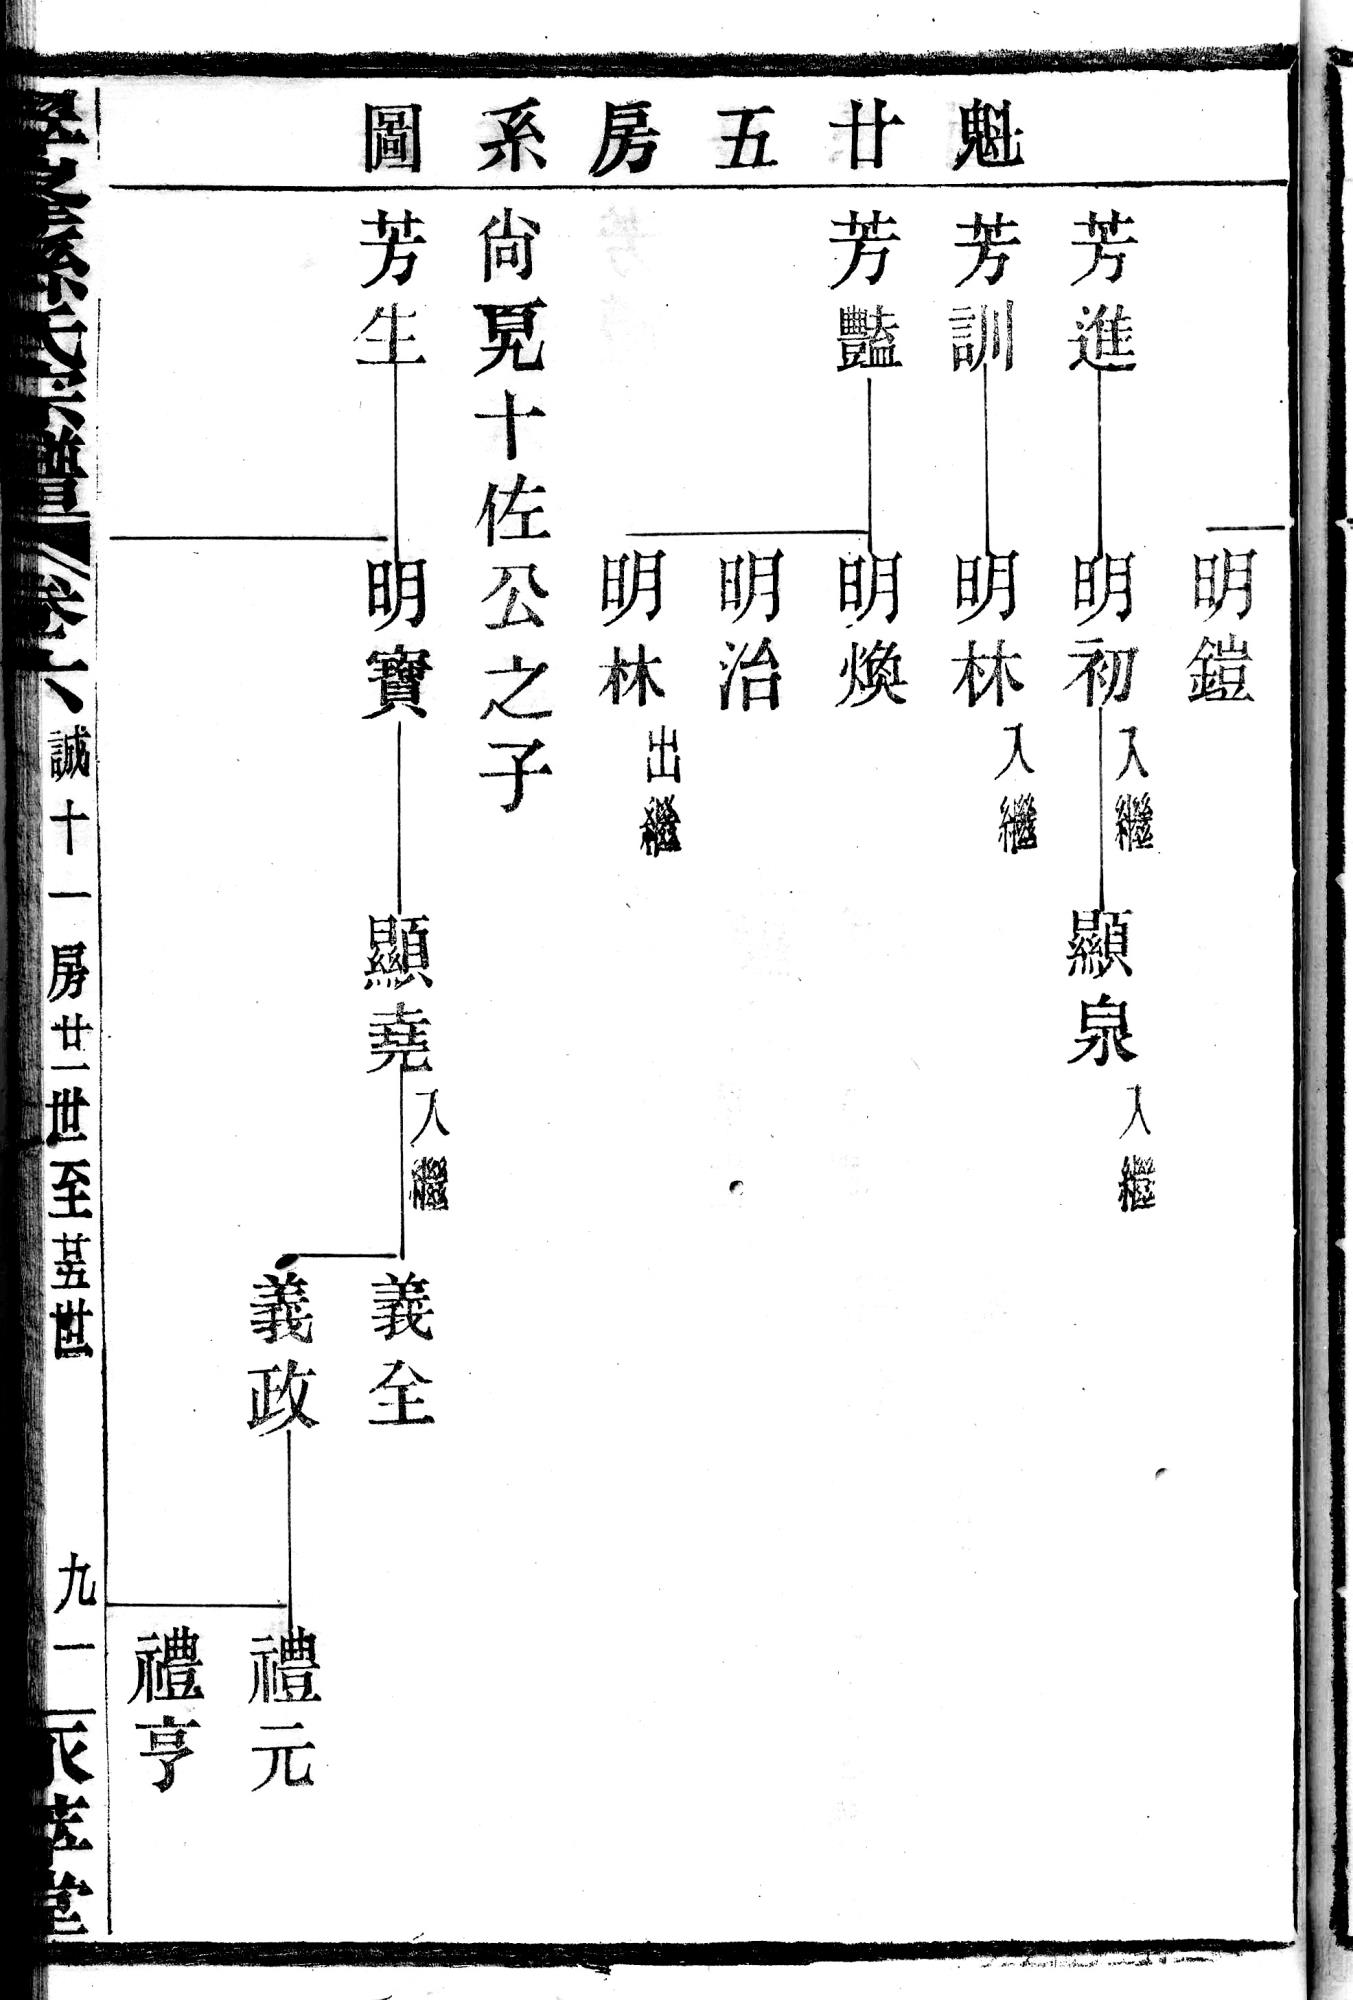 魁廿五房系圖
明鎧
芳進
明初入繼
顯泉入繼
芳訓
明林入繼
芳豔
明煥
明治
明林出繼
尙見十佐公之子
芳生
明寶
顯堯入繼
義全
義政
禮元
禮亨
孫氏宗譜
卷六
誠十一房廿一世至廿五世
九一
堂